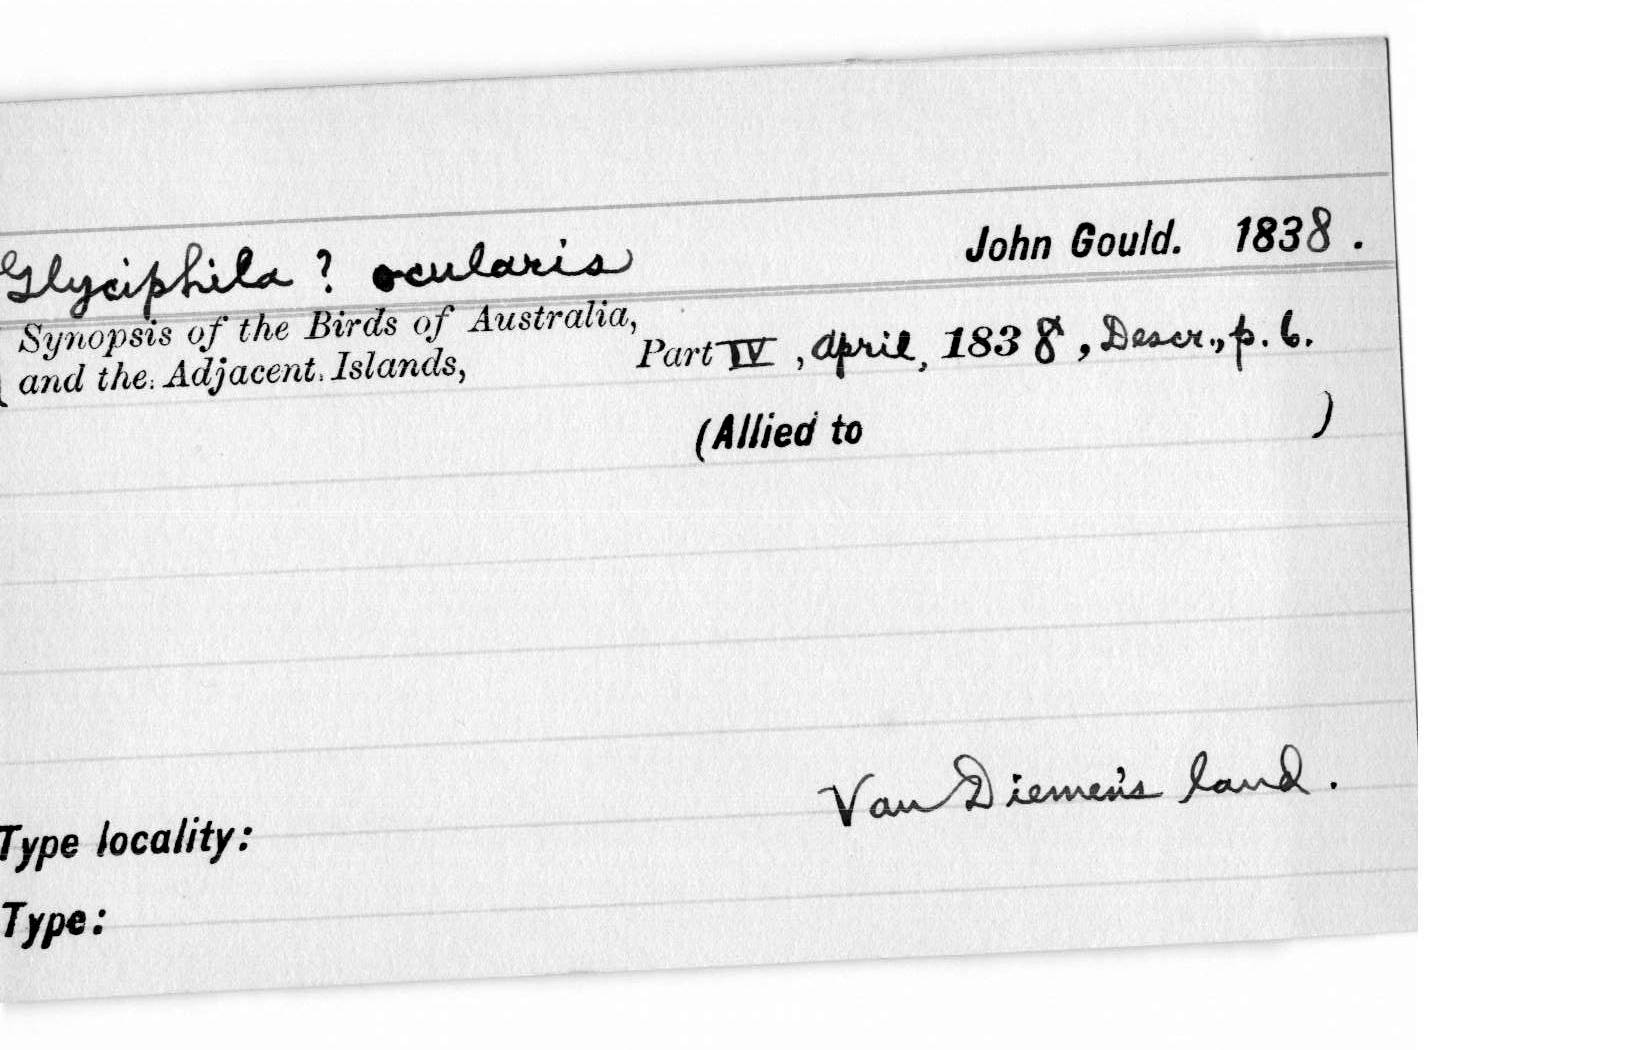 Glyciphila ? ocularis John Gould. 1838.
Synopsis of the Birds of Australia,
and the Adjacent Islands, Part IV, April, 1838, Descr., p. 6.
(Allied to )
Van Diemen's land.
Type locality:
Type: